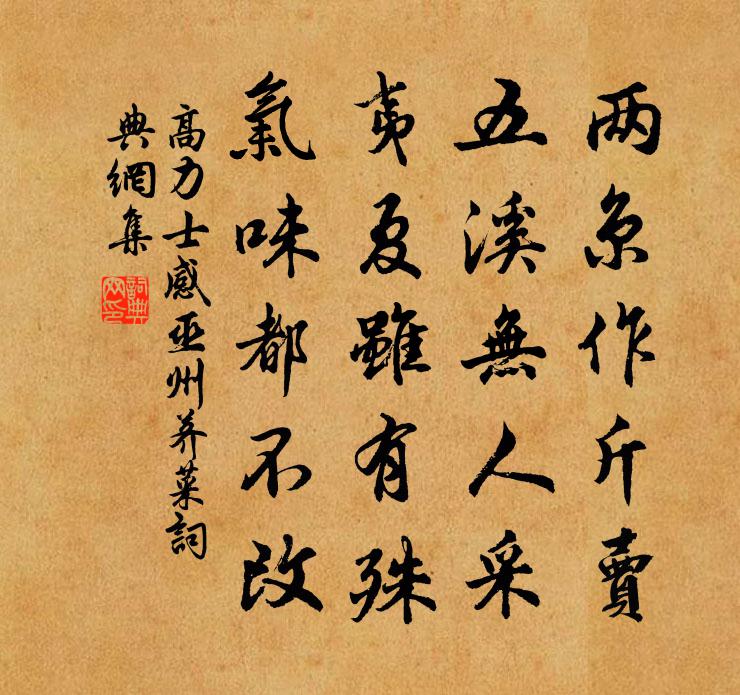 两京作斤賣
五溪無人采
夷夏雖有殊
氣味都不改
高力士感巫州荠菜詞
典網集
詞典
网印